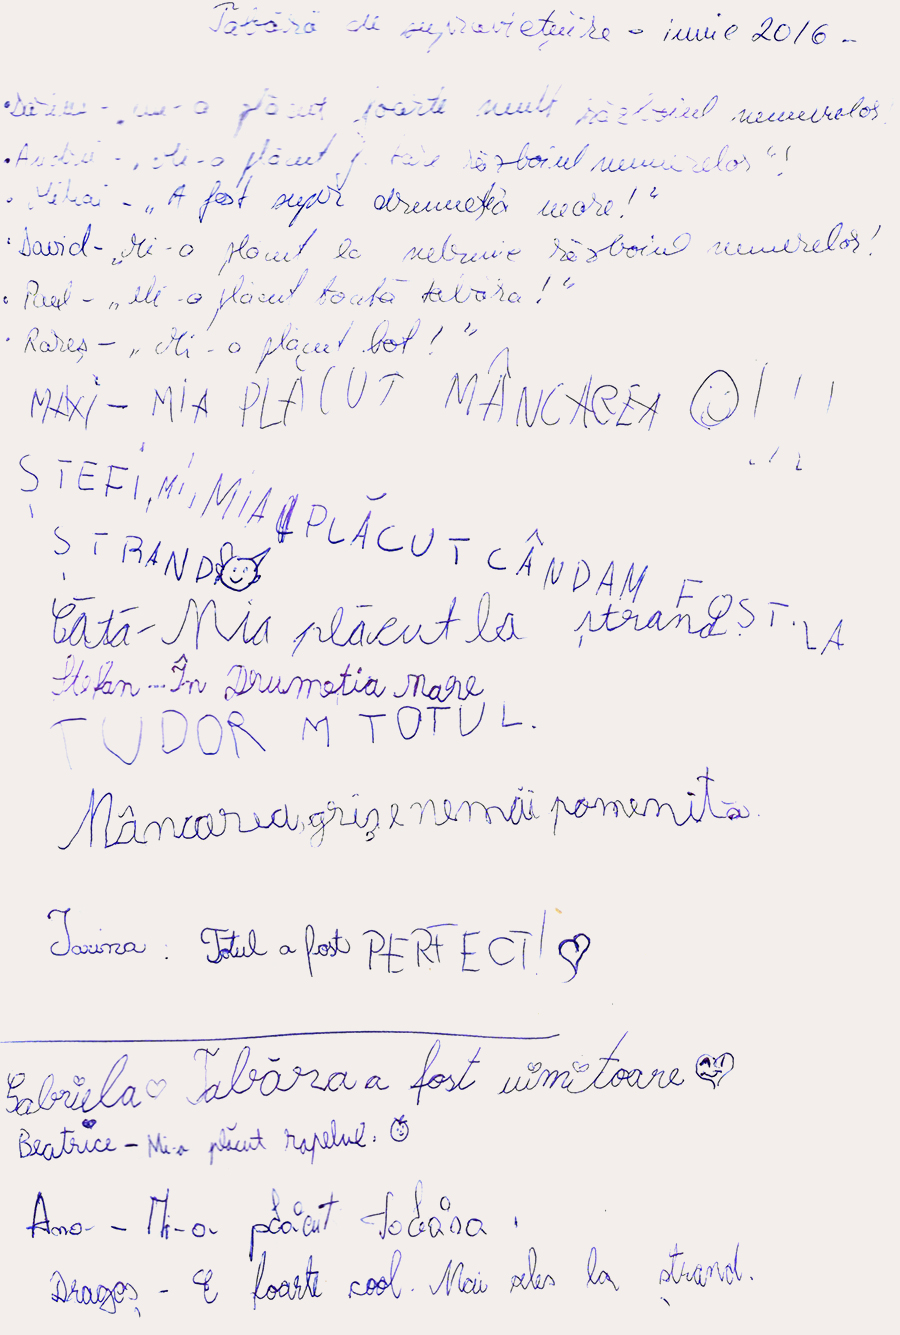 Tabără de supraviețuire - iunie 2016 -
• Darius - „mi-a plăcut foarte mult războiul numerelor!
• Andrei - „Mi-a plăcut f. tare războiul numerelor"!
• Mihai - „A fost super drumeția mare!"
• David - „Mi-a plăcut la nebunie războiul numerelor!
• Paul - „Mi-a plăcut toată tabăra!"
• Rareș - „Mi-a plăcut tot!"
MAXI - MIA PLĂCUT MÂNCAREA !!!
ȘTEFI, MIA PLĂCUT CÂNDAM FOST. LA
ȘTRAND
Cătă - Mia plăcut la ștrand.
Ștefan - În Drumeția Mare
TUDOR M TOTUL.
Mâncarea, grișe nemăi pomenită.
Ianina : Totul a fost PERFECT!
Gabriela Tabăra a fost uimitoare
Beatrice - Mi-a plăcut rapelul.
Ana - Mi-a plăcut tabăra.
Dragoș - E foarte cool. Mai ales la ștrand.